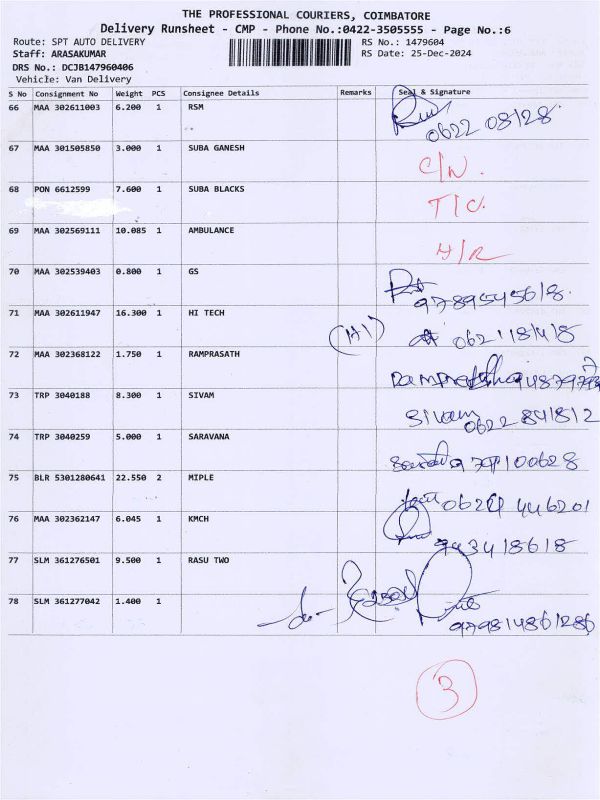 THE PROFESSIONAL COURIERS, COIMBATORE
Delivery Runsheet - CMP - Phone No.:0422-3505555 - Page No.:6
Route: SPT AUTO DELIVERY RS No.: 1479604
Staff: ARASAKUMAR RS Date: 25-Dec-2024
DRS No.: DCJB147960406
Vehicle: Van Delivery
S No Consignment No Weight PCS Consignee Details Remarks Seal & Signature
66 MAA 302611003 6.200 1 RSM
0622 08128
67 MAA 301505850 3.000 1 SUBA GANESH C/N.
68 PON 6612599 7.600 1 SUBA BLACKS T/C.
69 MAA 302569111 10.085 1 AMBULANCE H/R
70 MAA 302539403 0.800 1 GS
71 MAA 302611947 16.300 1 HI TECH
72 MAA 302368122 1.750 1 RAMPRASATH
73 TRP 3040188 8.300 1 SIVAM Sivam 0622 841812
74 TRP 3040259 5.000 1 SARAVANA
75 BLR 5301280641 22.550 2 MIPLE 446201
76 MAA 302362147 6.045 1 KMCH
943418618
77 SLM 361276501 9.500 1 RASU TWO
78 SLM 361277042 1.400 1 -do-
3